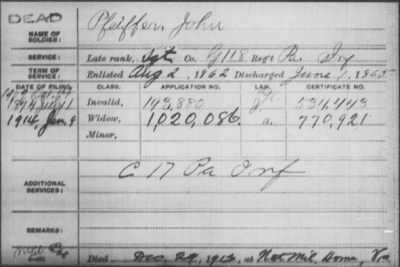 DEAD
NAME OF SOLDIER: Pfeiffer, John
SERVICE: Late rank, Sgt Co. G 118 Reg't Pa Inf
TERM OF SERVICE: Enlisted Aug 2, 1862 Discharged June 1, 1865
DATE OF FILING. CLASS. APPLICATION NO. CERTIFICATE NO.
Invalid, 143,880 534,443
1914, Jan. 9 Widow, 1,020,086. a. 770,921
Minor,
ADDITIONAL SERVICES: C 17 Pa Inf
REMARKS:
Died Dec. 29, 1913, at Nat Mil. Home, Va.